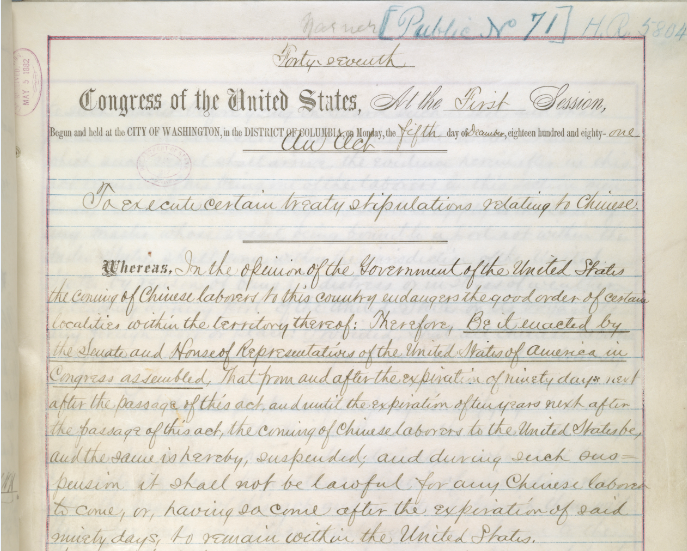 [Public No 71] H.R. 5804
Forty-seventh
Congress of the United States, At the First Session,
MAY 3 1882
Begun and held at the CITY OF WASHINGTON, in the DISTRICT OF COLUMBIA, on Monday, the fifth day of December, eighteen hundred and eighty-one
An Act
To execute certain treaty stipulations relating to Chinese.
Whereas, In the opinion of the Government of the United States
the coming of Chinese laborers to this country endangers the good order of certain
localities within the territory thereof: Therefore, Be it enacted by
the Senate and House of Representatives of the United States of America in
Congress assembled, That from and after the expiration of ninety days next
after the passage of this act, and until the expiration of ten years next after
the passage of this act, the coming of Chinese laborers to the United States be,
and the same is hereby, suspended, and during such sus=
pension it shall not be lawful for any Chinese laborer
to come, or, having so come after the expiration of said
ninety days, to remain within the United States.